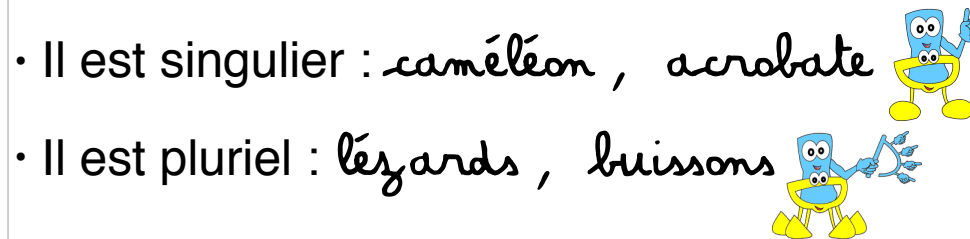 · Il est singulier : caméléon , acrobate
· Il est pluriel : lézards , buissons